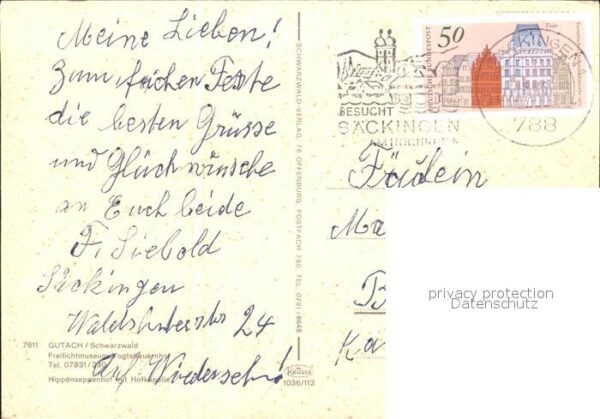 Meine Lieben!
Zum frohen Feste
die besten Grüsse
und Glückwünsche
an Euch beide
F. Siebold
Säckingen
24
Auf Wiedersehn!
7611 GUTACH / Schwarzwald
Freilichtmuseum Vogtsbauernhof
Tel. 07831/230
Hippenseppenhof mit Hofkapelle
SCHWARZWALD-VERLAG, 76 OFFENBURG, POSTFACH 780, TEL. 0781/8648
KRÜGER
1036/112
50
DEUTSCHE BUNDESPOST
Trier
BESUCHT
SÄCKINGEN
AM HOCHRHEIN
KINGEN 1
788
Fräulein
privacy protection
Datenschutz